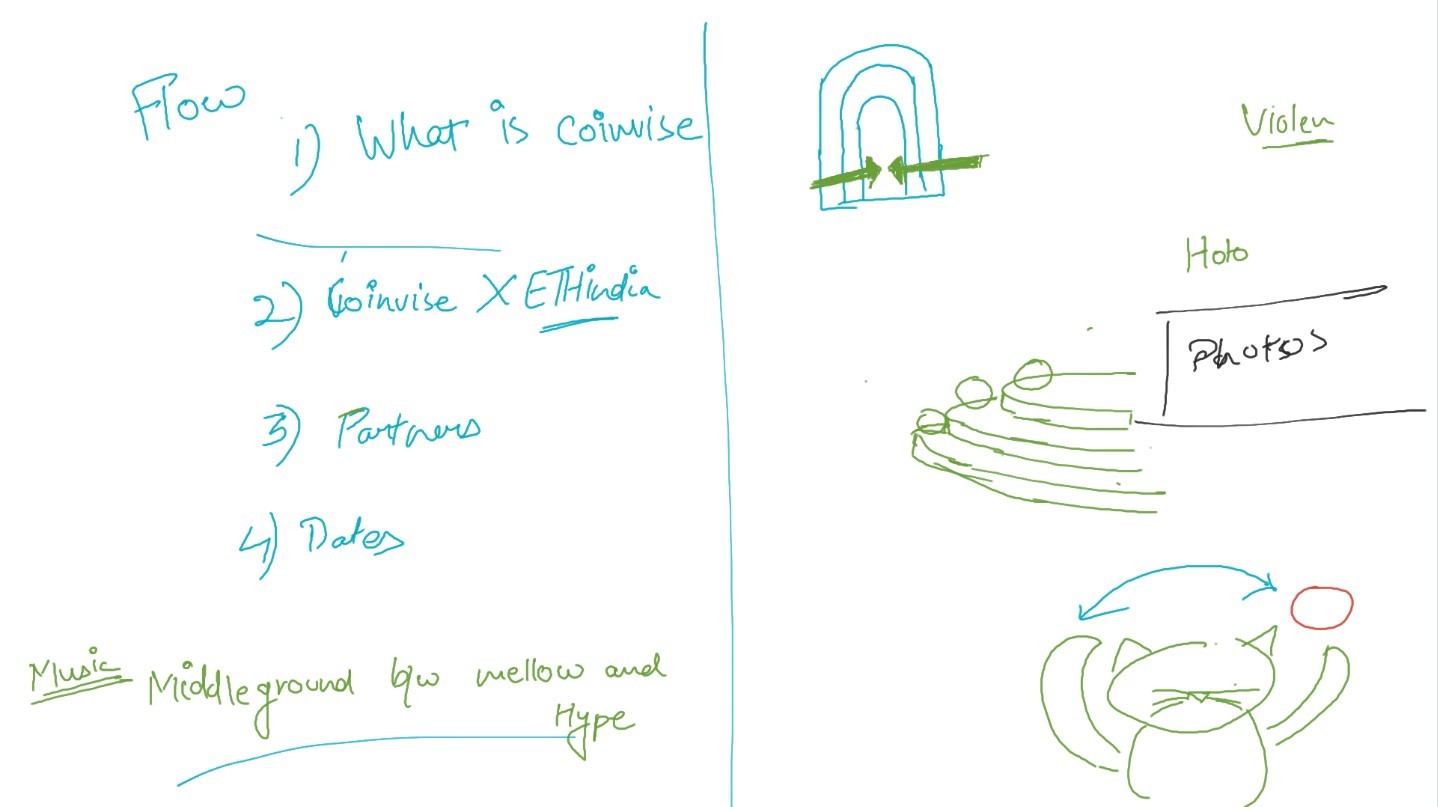 Flow
1) What is Coinvise
2) Coinvise X ETHindia
3) Partners
4) Dates
Music Middleground b/w mellow and
Hype
Violen
Holo
Photos